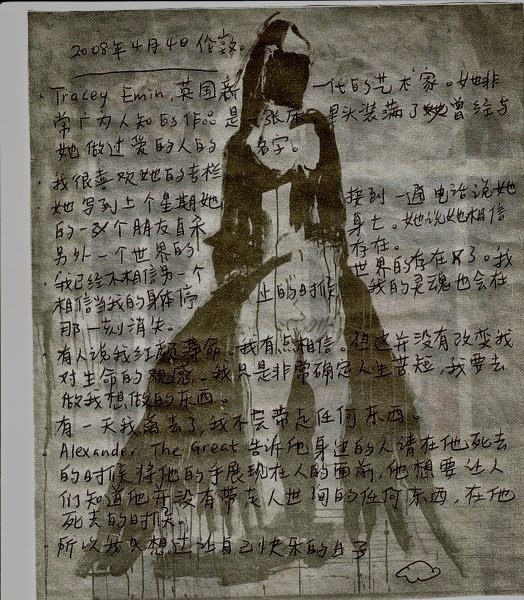 2008年4月4日 伦敦。
Tracey Emin, 英国新一代的艺术家。她非
常广为人知的作品是一张床 里头装满了她曾经与
她做过爱的人的名字。
我很喜欢她的专栏
她写到上个星期她接到一通电话说她
的一个朋友自杀身亡。她说她相信
另外一个世界的存在。
我已经不相信另一个世界的存在了。我
相信当我的身体停止的时候 我的灵魂也会在
那一刻消失。
有人说我红颜薄命。我有点相信。但这并没有改变我
对生命的观感。我只是非常确定人生苦短,我要去
做我想做的东西。
有一天我离去了,我不会带走任何东西。
Alexander The Great 告诉他身边的人请在他死去
的时候将他的手展现在人的面前,他想要让人
们知道他并没有带走人世间的任何东西,在他
死去的时候。
所以我只想过 自己快乐的日子